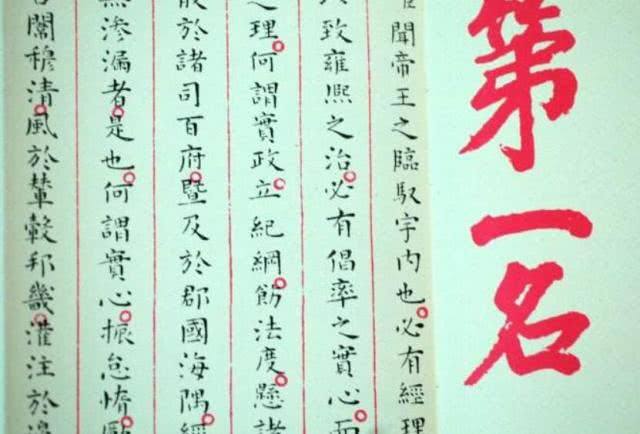 第一名
聞帝王之臨馭宇內也必有經理
致雍熙之治必有倡率之實心而
之理何謂實政立紀綱飭法度懸諸
散於諸司百府暨及於郡國海隅經
無滲漏者是也何謂實心振怠惰勵
闈穆清風於輦轂邦畿灌注於邊